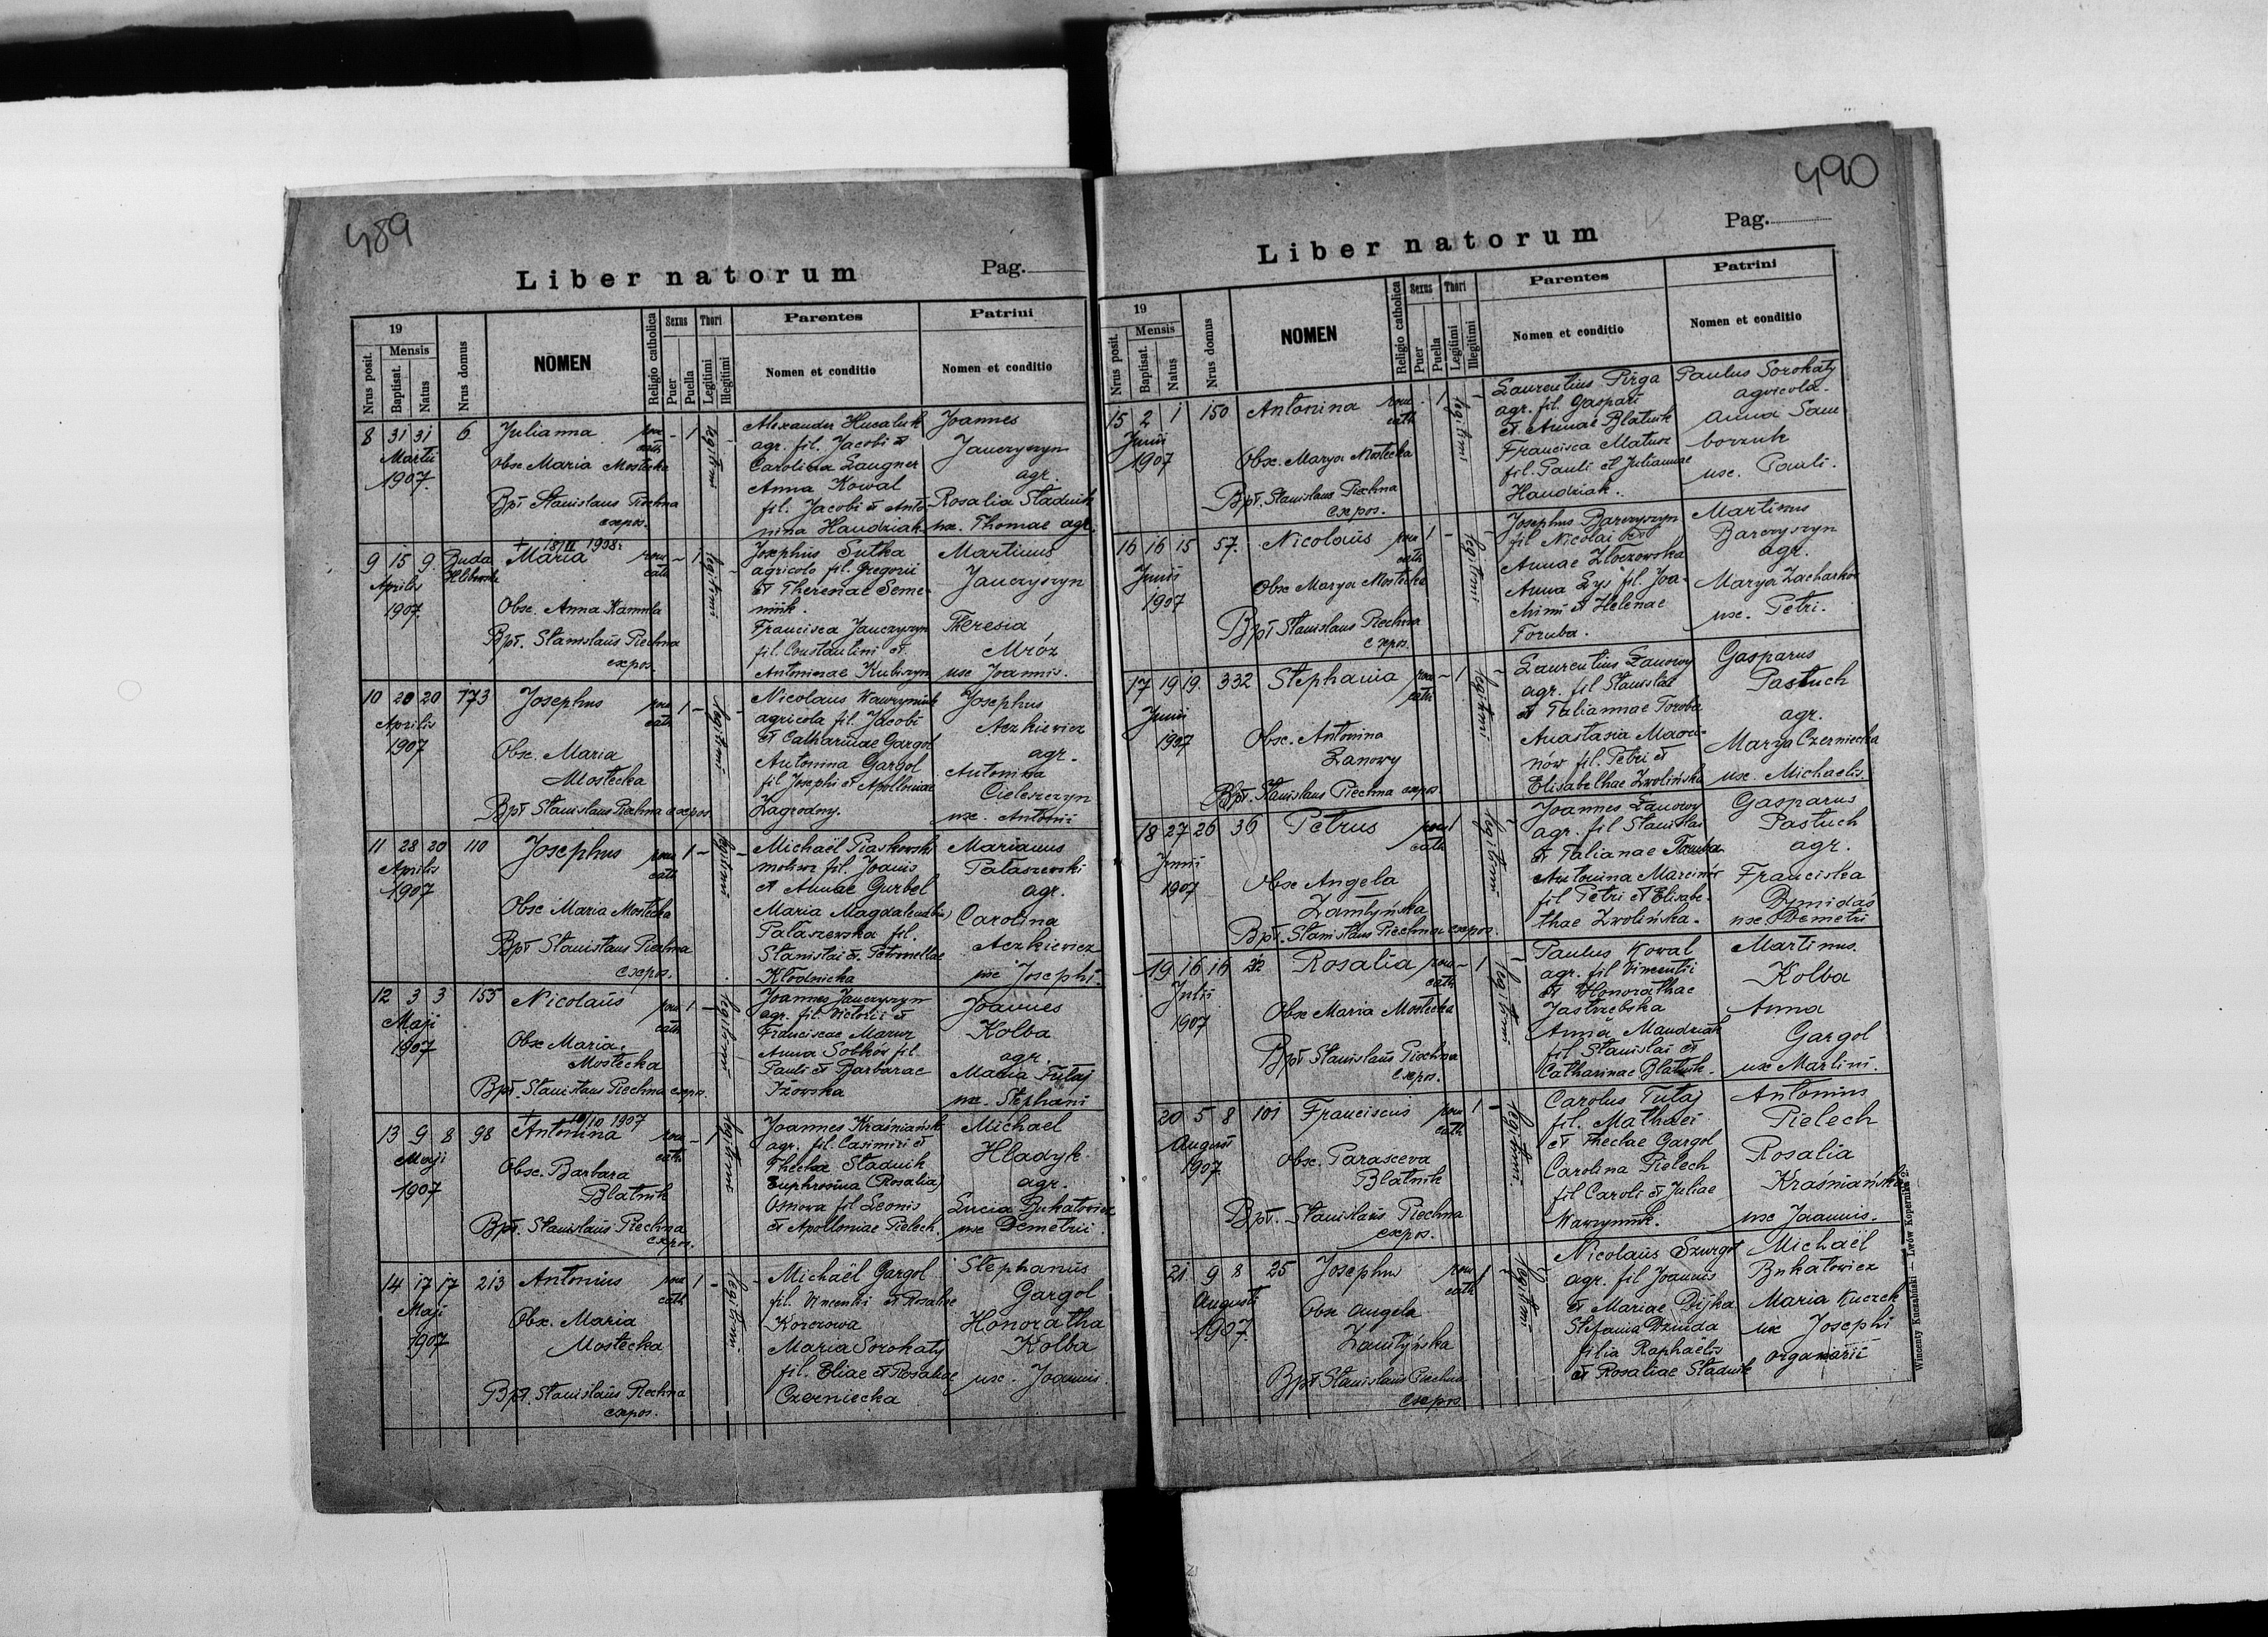 489
Liber natorum
Pag.
19
Mensis
Nrus posit.
Baptisat.
Natus
Nrus domus
NOMEN
Religio catholica
Sexus
Puer
Puella
Thori
Legitimi
Illegitimi
Parentes
Nomen et conditio
Patrini
Nomen et conditio
8 31 31 6 Julianna rom cath - 1 legitimi
Martii
1907.
Obse Maria Mostecka
Bpt Stanislaus Piechna
expos.
Alexander Hucaluk
agr. fil. Jacobi et
Carolina Laugner
Anna Kowal
fil. Jacobi et Anto-
nina Handziak
Joannes
Jauczyszyn
agr.
Rosalia Stadnik
uxe. Thomae agr.
9 15 9. Buda
Aprilis
1907.
† 18/II 1908.
Maria rom cath - 1 legitimi
Obse. Anna Kamula
Bpt. Stanislaus Piechna
expos.
Josephus Sutka
agricola fil. Gregorii
et Theresiae Seme-
niuk.
Francisca Jauczyszyn
fil. Constantini et
Antoninae Kubiszyn
Martinus
Jauczyszyn
Theresia
Mróz
uxe Joannis.
10 20 20 173 Josephus rom cath 1 - legitimi
Aprilis
1907
Obse. Maria
Mostecka
Bpt Stanislaus Piechna expos
Nicolaus Wawryniuk
agricola fil. Jacobi
et Catharinae Gargol
Antonina Gargol
fil Josephi et Apolloniae
Zagrodny.
Josephus
Aczkiewicz
agr.
Antonina
Cieleszczyn
uxe. Antonii
11 28 20 110 Josephus rom cath 1 - legitimi
Aprilis
1907
Obse Maria Mostecka
Bpt Stanislaus Piechna
expos.
Michaël Piaskowski
fil. Joanis
et Annae Gurbel
Maria Magdalena
Pałaszewska fil.
Stanislai et Petronellae
Kłodnicka
Marianus
Pałaszewski
agr.
Carolina
Aczkiewicz
uxe Josephi.
12 3 3 155 Nicolaus rom cath 1 - legitimi
Maji
1907
Obse Maria
Mostecka
Bpt. Stanislaus Piechna expos.
Joannes Jauczyszyn
agr. fil. Victorii et
Franciscae Mazur
Anna Sobków fil.
Pauli et Barbarae
Iżowska
Joannes
Kolba
agr.
Maria Tutaj
uxe. Stephani
13 9 8 98 Antonina rom cath - 1 legitimi
Maji
1907
† 10/10 1907
Obse. Barbara
Blatnik
Bpt. Stanislaus Piechna
expos.
Joannes Kraśniański
agr. fil. Casimiri et
Thecla Stadnik
Euphrosina (Rosalia)
Osnowa fil Leonis
et Apolloniae Pielech.
Michael
Hladyk
agr.
Lucia Bukatowicz
uxe Demetrii.
14 17 17 213 Antonius rom cath 1 - legitimi
Maji
1907
Obse. Maria
Mostecka
Bpt. Stanislaus Piechna
expos.
Michaël Gargol
fil. Vincentii et Rosaliae
Korczowa
Maria Sorokaty
fil. Eliae et Rosaliae
Czerniecka
Stephanus
Gargol
Honoratha
Kolba
uxe. Joannis.
490
Liber natorum
Pag.
19
Mensis
Nrus posit.
Baptisat.
Natus
Nrus domus
NOMEN
Religio catholica
Sexus
Puer
Puella
Thori
Legitimi
Illegitimi
Parentes
Nomen et conditio
Patrini
Nomen et conditio
15 2 1 150 Antonina rom cath - 1 legitimi
Junii
1907
Obse. Marya Mostecka
Bpt. Stanislaus Piechna
expos.
Laurentius Pirga
agr. fil. Gaspari
et Annae Blatnik
Francisca Matusz
fil. Pauli et Juliannae
Handziak.
Paulus Sorokaty
agricola.
Anna Sam
borzuk
uxe. Pauli.
16 16 15 57. Nicolaus rom cath 1 - legitimi
Junii
1907
Obse Marya Mostecka
Bpt Stanislaus Piechna
expos.
Josephus Barczyszyn
fil Nicolai et
Annae Złoczowska
Anna Lys fil. Joa-
chimi et Helenae
Toruba.
Martinus
Barczyszyn
agr.
Marya Zacharkow
uxe. Petri.
17 19 19. 332 Stephania rom cath - 1 legitimi
Junii
1907
Obse. Antonina
Łanowy
Bpt. Stanislaus Piechna expos.
Laurentius Łanowy
agr. fil Stanislai
et Taliannae Toroba
Anastasia Marci-
nów fil. Petri et
Elisabethae Zwolińska
Gasparus
Pastuch
agr.
Marya Czerniecka
uxe. Michaelis.
18 27 26 36 Petrus rom cath 1 legitimi
Junii
1907
Obse Angela
Zamłyńska
Bpt. Stanislaus Piechna expos.
Joannes Łanowy
agr. fil Stanislai
et Talianae Toruba
Antonina Marcinów
fil Petri et Elisabe-
thae Zwolińska.
Gasparus
Pastuch
agr.
Franciska
Dymidas
uxe Demetri
19 16 16 22 Rosalia rom cath - 1 legitimi
Julii
1907
Obse Maria Mostecka
Bpt Stanislaus Piechna
expos.
Paulus Kowal
agr. fil Vincentii
et Honorathae
Jastrzebska
Anna Mandziak
fil Stanislai et
Catharinae Blatnik.
Martinus.
Kolba
Anna
Gargol
uxe Martini.
20 5 8 101 Franciscus rom cath 1 - legitimi
August
1907
Obse. Parasceva
Blatnik
Bpt. Stanislaus Piechna
expos.
Carolus Tutaj
fil. Mathaei
et Theclae Gargol
Carolina Pielech
fil Caroli et Juliae
Wawryniuk.
Antonius
Pielech
Rosalia
Kraśniańska
uxe Joannis.
21 9 8 25 Josephus rom cath 1 legitimi
Augusti
1907.
Obse Angela
Zamłyńska
Bpt Stanislaus Piechna
expos
Nicolaus Szurgot
agr. fil Joannis
et Mariae Dijka
Stefania Dziuda
filia Raphaëlis
et Rosaliae Stadnik
Michaël
Bukatowicz
Maria Kuczek
uxe Josephi
organarii
Wincenty Kuczabiński — Lwów Kopernika 2.